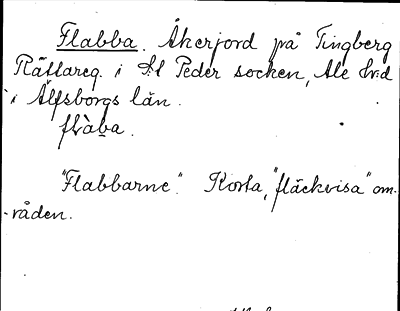 Flabba. Åkerjord på Tingberg
Rättareg. i S:t Peder socken, Ale hd
i Älfsborgs län.
flàba.
"Flabbarne". Korta, "fläckvisa" om-
råden.